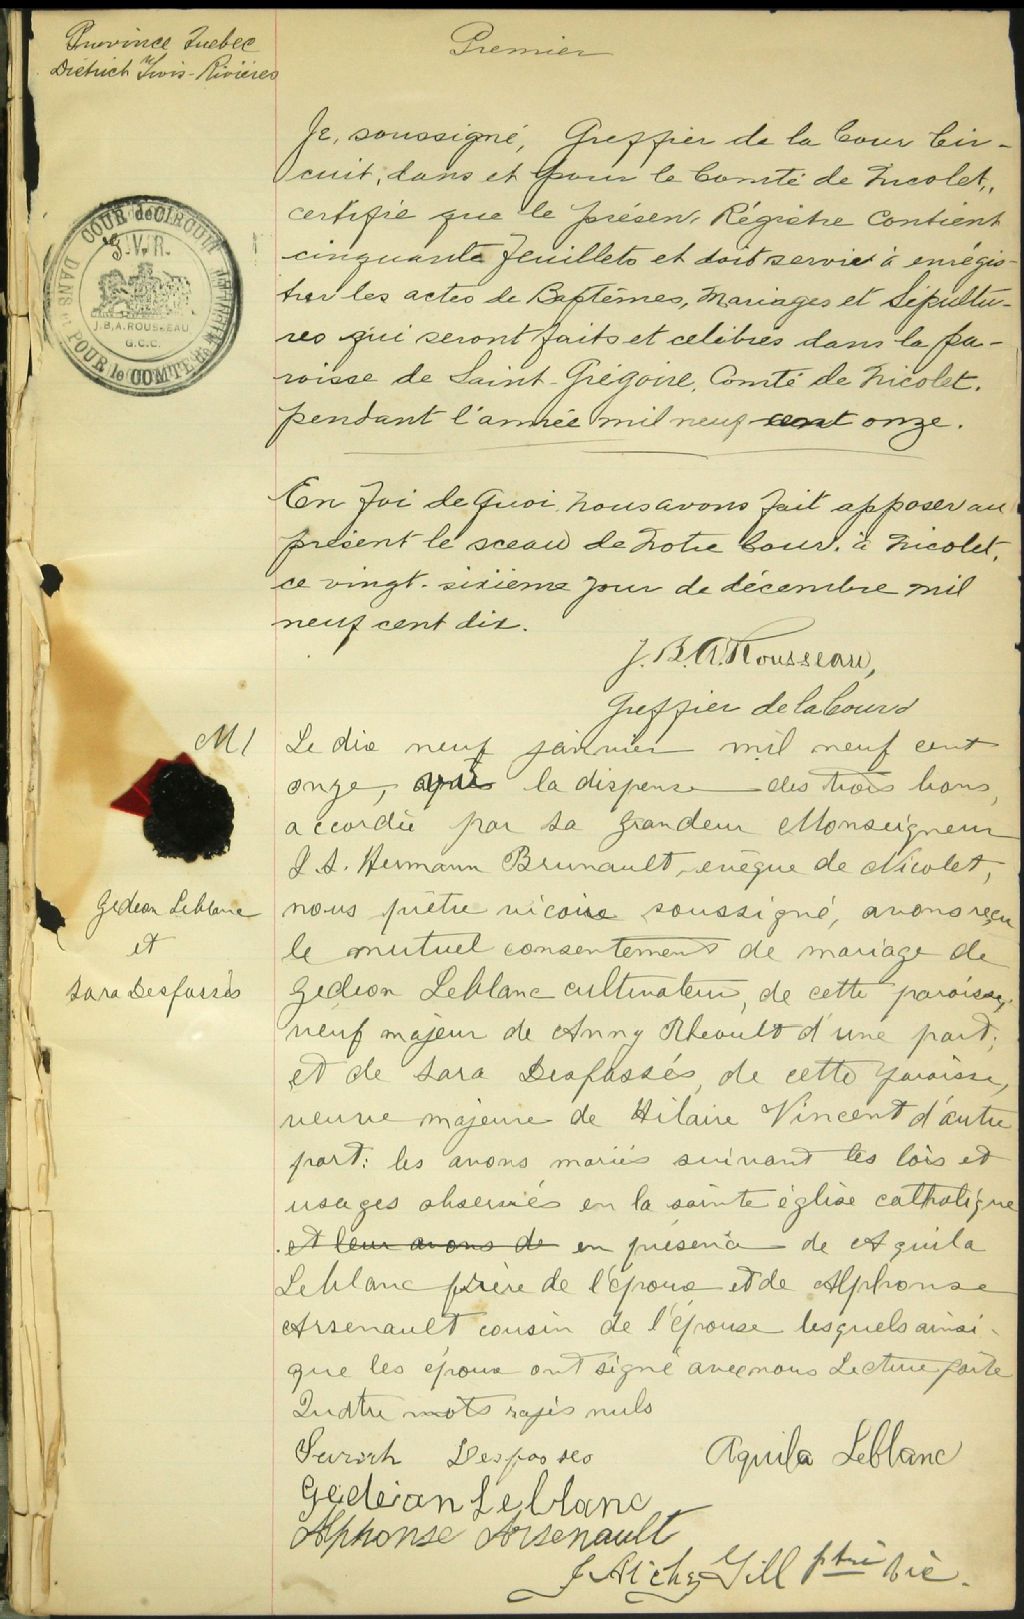 Province Quebec
District Trois-Rivières
Premier
COUR de CIRCUIT
DANS et POUR le COMTÉ
J.B.A. ROUSSEAU
G.C.C.
Je, soussigné, Greffier de la Cour Cir-
cuit, dans et pour le Comté de Nicolet,
certifie que le présent Régistre contient
cinquante feuillets et doit servir à enrégis-
trer les actes de Baptêmes, Mariages et Sépultu-
res qui seront faits et célébrés dans la pa-
roisse de Saint-Grégoire, Comté de Nicolet.
pendant l'année mil neuf cent onze.
En foi de Quoi, Nous avons fait apposer au
présent le sceau de Notre Cour, à Nicolet,
ce vingt-sixième jour de décembre mil
neuf cent dix.
J.B.A. Rousseau,
Greffier de la Cour
M1
Gedeon Leblanc
et
Sara Desfossés
Le dix neuf janvier mil neuf cent
onze, après la dispense des trois bans,
accordée par Sa Grandeur Monseigneur
J.S. Hermann Brunault, evêque de Nicolet,
nous prêtre vicaire soussigné, avons reçu
le mutuel consentement de mariage de
Gedeon Leblanc cultivateur, de cette paroisse,
veuf majeur de Anny Rheault d'une part;
et de Sara Desfossés, de cette paroisse,
veuve majeure de Hilaire Vincent d'autre
part: les avons mariés suivant les lois et
usages observés en la sainte église catholique
et leur avons de en présence de Aquila
Leblanc frère de l'époux et de Alphonse
Arsenault cousin de l'épouse lesquels ainsi
que les époux ont signé avec nous Lecture faite
Quatre mots rayés nuls
Sarah Desfosses
Aquila Leblanc
Gedeian Leblanc
Alphonse Arsenault
Gill ptre vic.